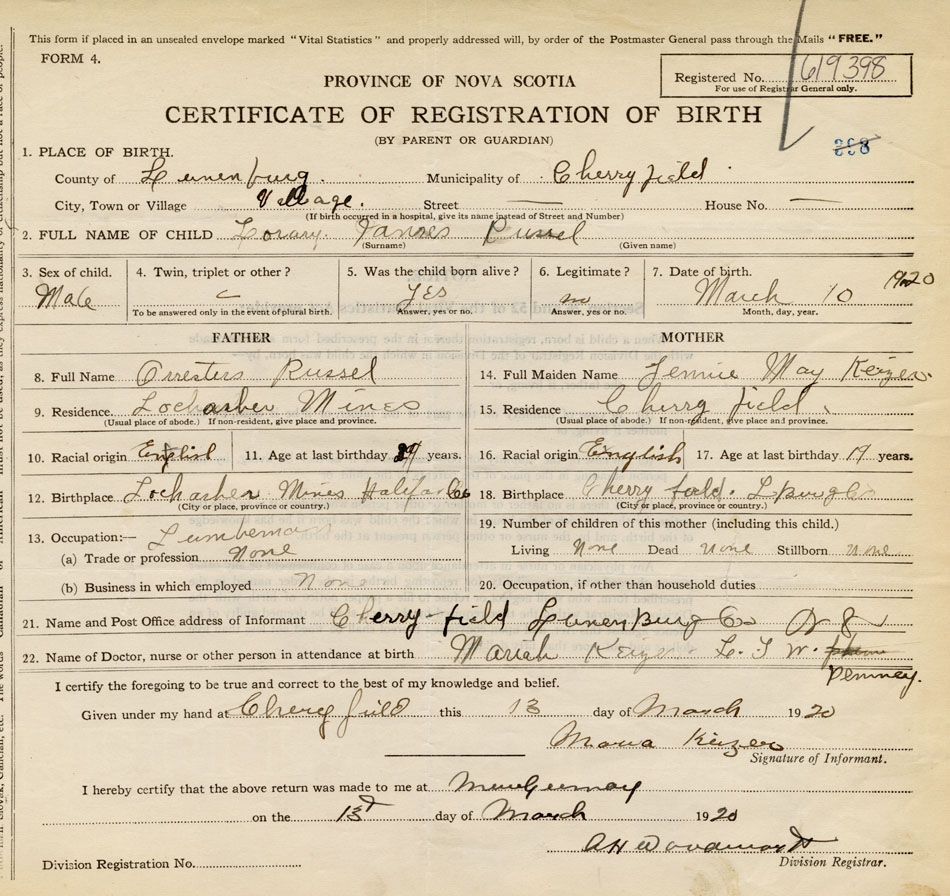 This form if placed in an unsealed envelope marked "Vital Statistics" and properly addressed will, by order of the Postmaster General pass through the Mails "FREE."
FORM 4.
Registered No. 619398
For use of Registrar General only.
PROVINCE OF NOVA SCOTIA
CERTIFICATE OF REGISTRATION OF BIRTH
(BY PARENT OR GUARDIAN)
398
1. PLACE OF BIRTH.
County of Lunenburg. Municipality of Cherryfield
City, Town or Village Village. Street — House No. —
(If birth occurred in a hospital, give its name instead of Street and Number)
2. FULL NAME OF CHILD James Russel
(Surname) (Given name)
3. Sex of child. 4. Twin, triplet or other? 5. Was the child born alive? 6. Legitimate? 7. Date of birth.
Male — Yes no March 10 1920
To be answered only in the event of plural birth. Answer, yes or no. Answer, yes or no. Month, day, year.
FATHER MOTHER
8. Full Name Russel
14. Full Maiden Name Jennie May Keizer.
9. Residence. Lochasber Mines
(Usual place of abode.) If non-resident, give place and province.
15. Residence Cherry field
(Usual place of abode.) If non-resident, give place and province.
10. Racial origin English 11. Age at last birthday years.
16. Racial origin English 17. Age at last birthday 17 years.
12. Birthplace Lochasber Mines Halifax Co
(City or place, province or country.)
18. Birthplace Cherry field. LBurg Co
(City or place, province or country.)
13. Occupation:— Lumberman
(a) Trade or profession None
(b) Business in which employed None
19. Number of children of this mother (including this child.)
Living None Dead None Stillborn None
20. Occupation, if other than household duties
21. Name and Post Office address of Informant Cherry-field LunenBurg Co N S
22. Name of Doctor, nurse or other person in attendance at birth Mariah Keizer L. W. Penney.
I certify the foregoing to be true and correct to the best of my knowledge and belief.
Given under my hand at Cherryfield this 13 day of March 1920
Maria Keizer
Signature of Informant.
I hereby certify that the above return was made to me at
on the 13th day of March 1920
Division Registration No.
Division Registrar.